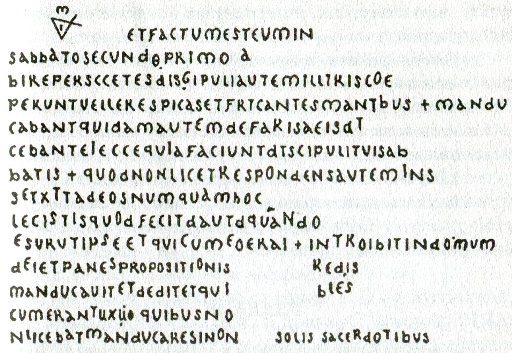 ETFACTUMESTEUMIN
SABBATOSECUNDOPRIMO A
BIREPERSCCETESDISGIPULIAUTEMILLTRISCOE
PERUNTUELLERESPICASETFRTCANTESMANTBUS + MANDU
CABANTQUIDAMAUTEMDEFARISAEISDT
CEBANTEIECCEQUIAFACIUNTDTSCIPULITUISAB
BATIS + QUODNONLICETRESPONDENSAUTEMINS
SETXTTADEOSNUMQUAMHOC
LECISTISQUODFECITDAUTDQUANDO
ESURUTIPSEETQUICUMEOERAI + INTROIBITINDOMUM
DEIETPANESPROPOSITIONIS REDIS
MANDUCAUITETDEDITETQUI BLES
CUMERANTUXUO QUIBUSNO
NLICEBATMANDUCARESINON SOLIS SACERDOTIBUS